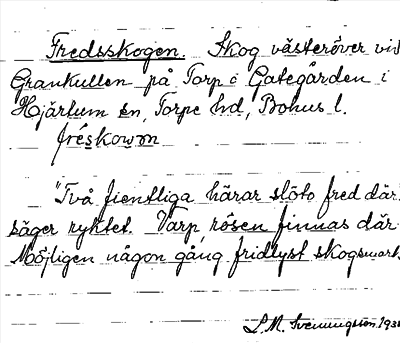 Fredsskogen. Skog västeröver vid
Grankullen på Torp o Gategården i
Hjärtum sn, Torpe hd, Bohus l.
fréskowm
"Två fientliga härar slöto fred där"
säger ryktet. Varp, rösen finnas där
Möjligen någon gång fridlyst skogsmark.
L. M. Svenungsson. 193